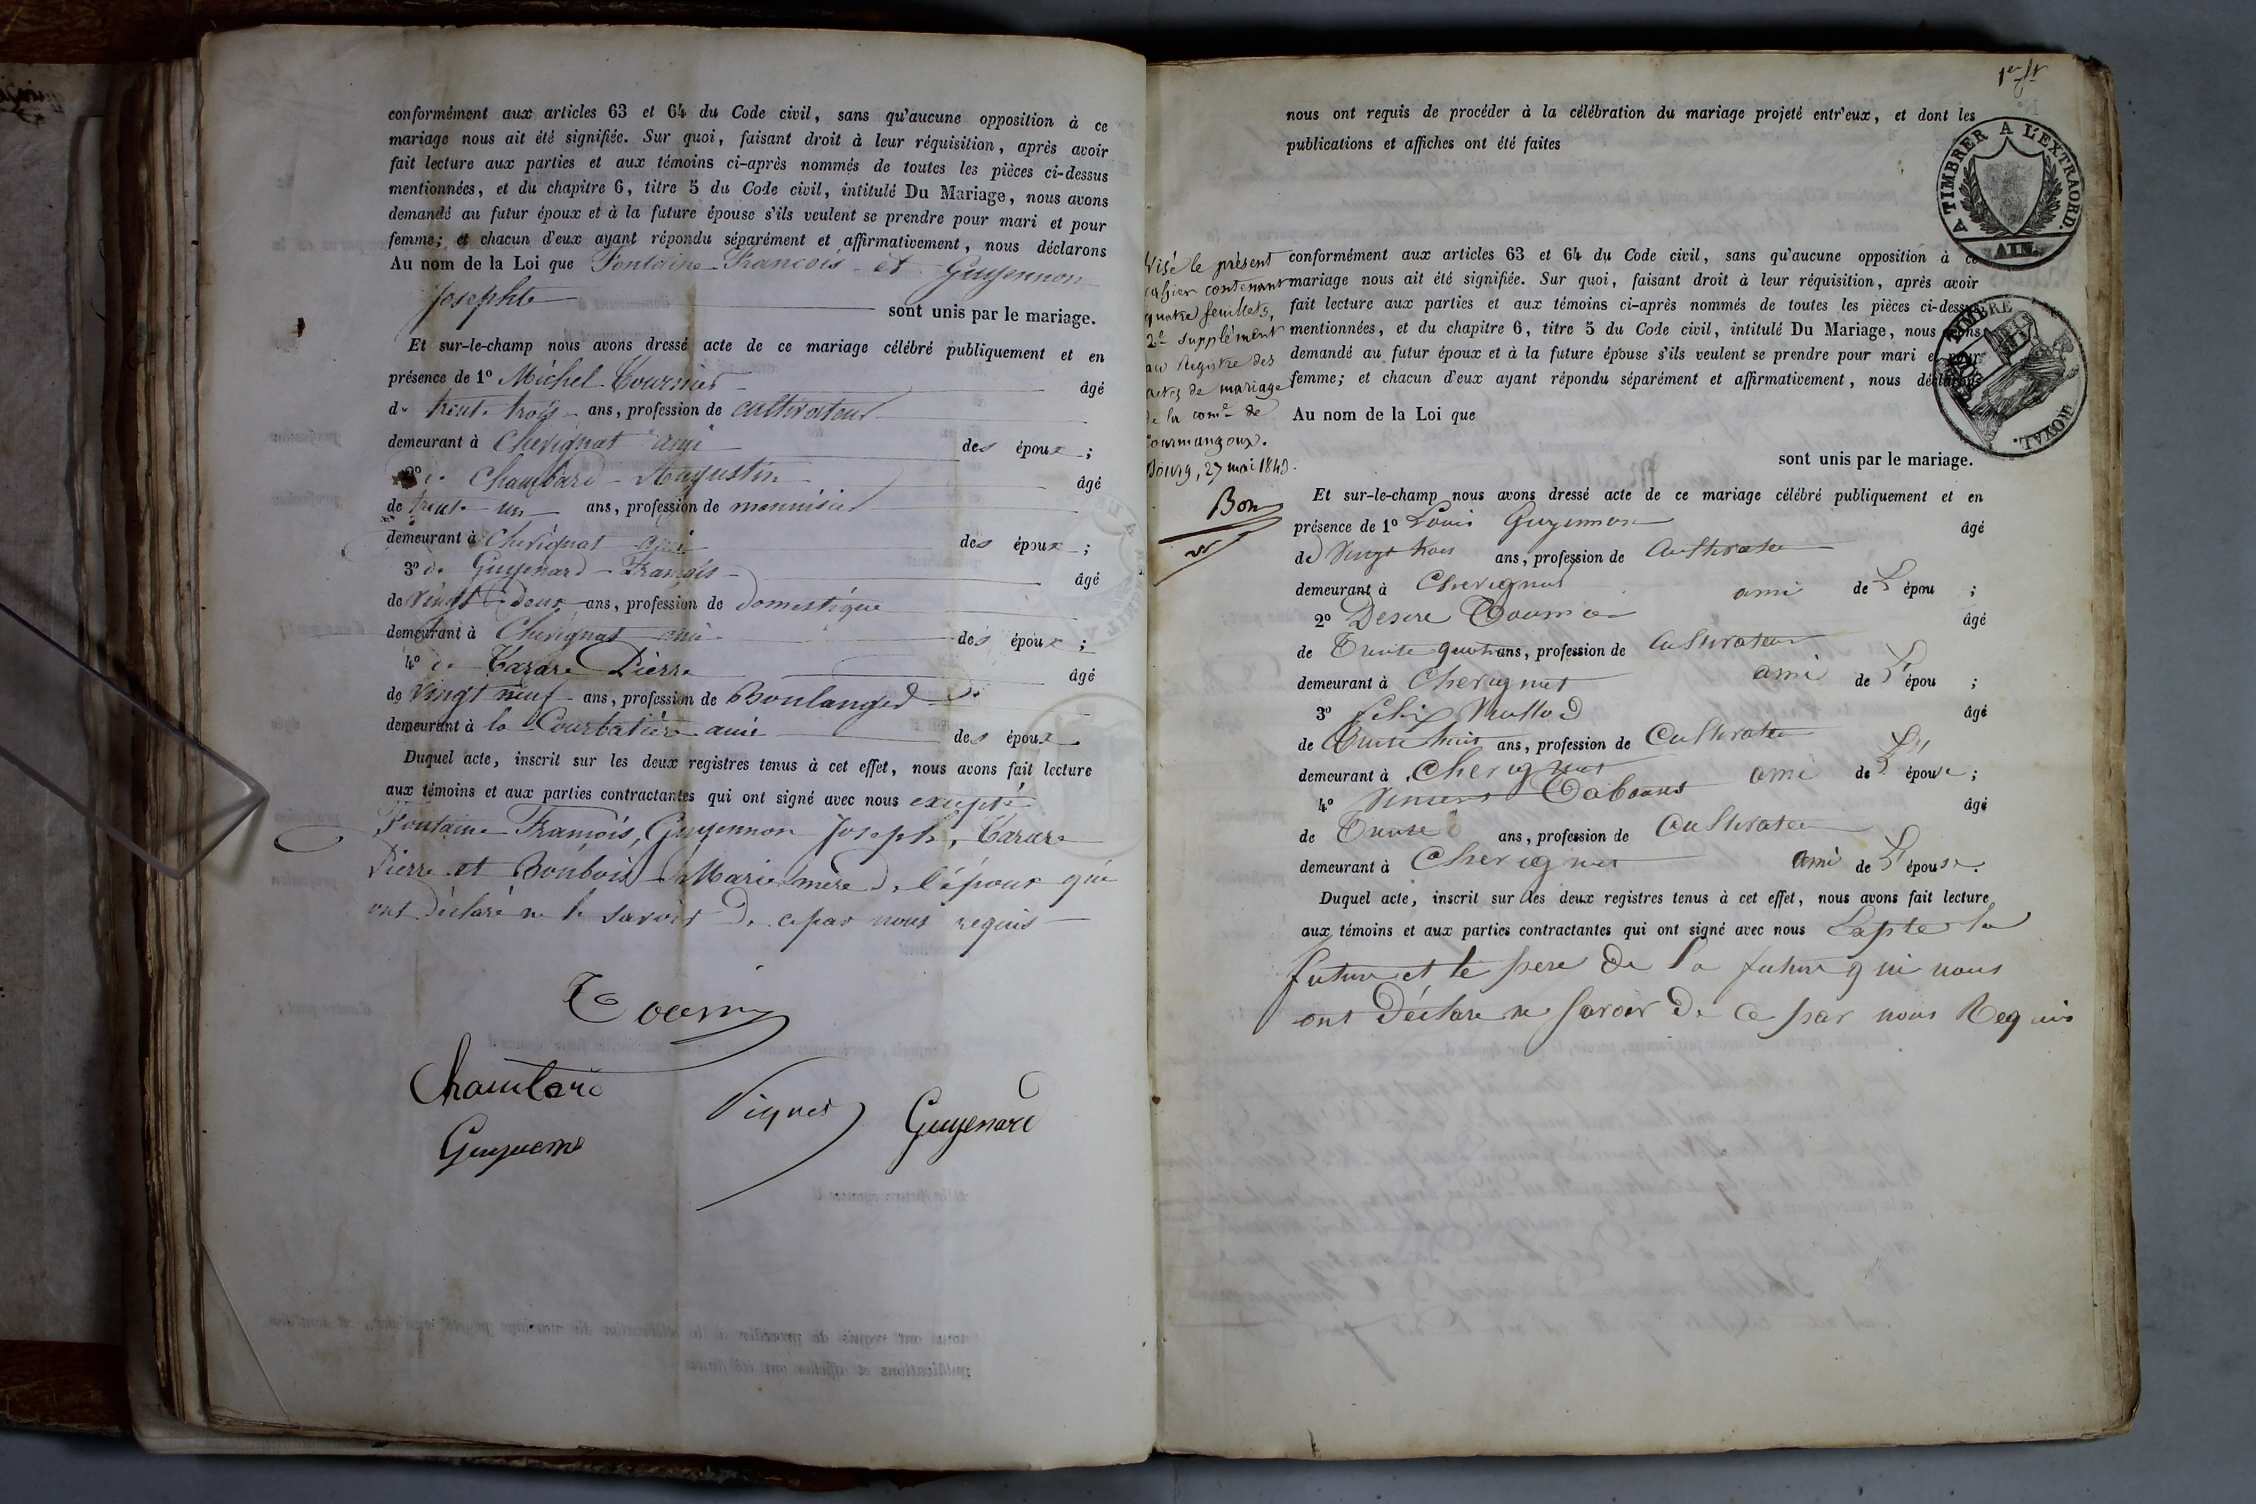 conformément aux articles 63 et 64 du Code civil, sans qu'aucune opposition à ce
mariage nous ait été signifiée. Sur quoi, faisant droit à leur réquisition, après avoir
fait lecture aux parties et aux témoins ci-après nommés de toutes les pièces ci-dessus
mentionnées, et du chapitre 6, titre 5 du Code civil, intitulé Du Mariage, nous avons
demandé au futur époux et à la future épouse s'ils veulent se prendre pour mari et pour
femme; et chacun d'eux ayant répondu séparément et affirmativement, nous déclarons
Au nom de la Loi que Fontaine François et Guyennon
Josephte sont unis par le mariage.
Et sur-le-champ nous avons dressé acte de ce mariage célébré publiquement et en
présence de 1° Michel Tournier âgé
de trente trois ans, profession de cultivateur
demeurant à Chevignat ami des époux ;
2° de Chambard Augustin âgé
de trente un ans, profession de menuisier
demeurant à Chevignat ami des époux ;
3° de Guyenard François âgé
de vingt Deux ans, profession de domestique
demeurant à Chevignat ami des époux ;
4° de Tarare Pierre âgé
de vingt neuf ans, profession de Boulanger
demeurant à la Courbatière ami des époux
Duquel acte, inscrit sur les deux registres tenus à cet effet, nous avons fait lecture
aux témoins et aux parties contractantes qui ont signé avec nous excepté
Fontaine François, Guyennon Joseph, Tarare
Pierre et Bonbois Marie mère de l'époux qui
ont déclaré ne le savoir De ce par nous requis
Chambard
Guyenard
1er
nous ont requis de procéder à la célébration du mariage projeté entr'eux, et dont les
publications et affiches ont été faites
A TIMBRER A L'EXTRAORD.
AIN.
TIMBRE ROYAL.
Visé le présent
cahier contenant
quatre feuillets,
2e supplément
au Registre des
actes de mariage
de la come de
Courmangoux.
Bourg, 27 mai 1843.
Bon
conformément aux articles 63 et 64 du Code civil, sans qu'aucune opposition à ce
mariage nous ait été signifiée. Sur quoi, faisant droit à leur réquisition, après avoir
fait lecture aux parties et aux témoins ci-après nommés de toutes les pièces ci-dessus
mentionnées, et du chapitre 6, titre 5 du Code civil, intitulé Du Mariage, nous avons
demandé au futur époux et à la future épouse s'ils veulent se prendre pour mari et pour
femme; et chacun d'eux ayant répondu séparément et affirmativement, nous déclarons
Au nom de la Loi que
sont unis par le mariage.
Et sur-le-champ nous avons dressé acte de ce mariage célébré publiquement et en
présence de 1° Louis Guyennon âgé
de Vingt trois ans, profession de Cultivateur
demeurant à Chevignat ami de L' épou ;
2° Desire Tournier âgé
de Trente quatre ans, profession de Cultivateur
demeurant à Chevignat ami de L' épou ;
3° Felix âgé
de Trente huit ans, profession de Cultivateur
demeurant à Chevignat ami de L' épouse ;
4° âgé
de Trente ans, profession de Cultivateur
demeurant à Chevignat ami de L' épouse.
Duquel acte, inscrit sur les deux registres tenus à cet effet, nous avons fait lecture
aux témoins et aux parties contractantes qui ont signé avec nous la
future et le pere De la future qui nous
ont Déclare ne savoir De ce par nous Requis